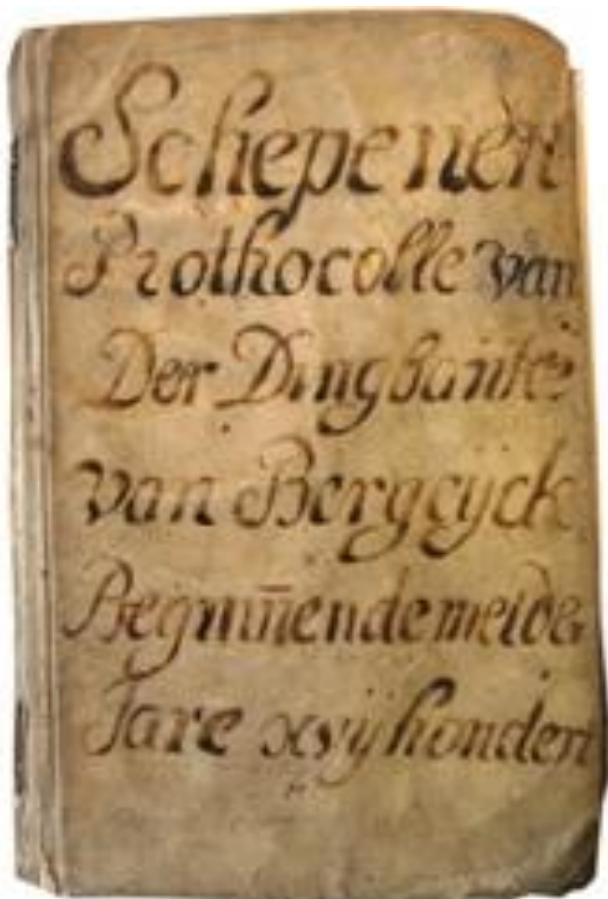 Schepenen
Prothocolle van
Der Dingbancke
van Bergeijck
Beginnende metde
Jare xvijhondert